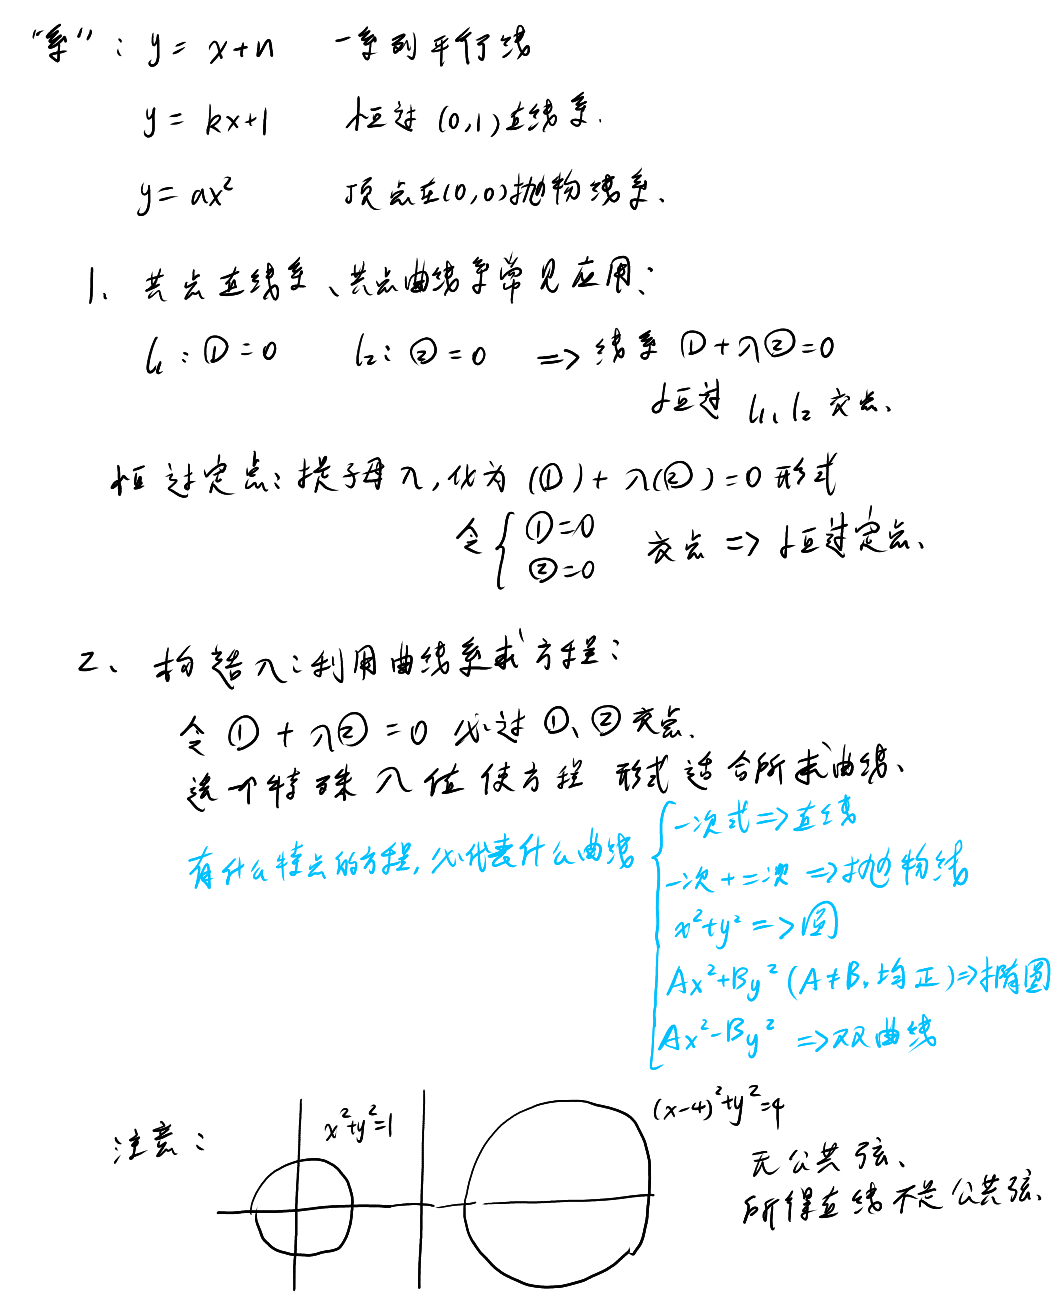 “系”：y = x+n 一系列平行线
y = kx+1 恒过 (0,1) 直线系.
y = ax² 顶点在(0,0)抛物线系.
1、共点直线系、共点曲线系常见应用：
l₁：①=0 l₂：②=0 => 线系 ①+λ②=0
恒过 l₁、l₂ 交点.
恒过定点：提字母λ,化为 (①)+λ(②)=0 形式
令 { ①=0 ②=0 交点 => 恒过定点.
2、构造λ：利用曲线系求方程：
令 ①+λ②=0 必过 ①、②交点.
选一个特殊λ值使方程 形式适合所求曲线.
有什么特点的方程,必代表什么曲线
一次式=>直线
一次+二次 =>抛物线
x²+y² =>圆
Ax²+By² (A≠B,均正)=>椭圆
Ax²-By² =>双曲线
注意：
x²+y²=1
(x-4)²+y²=4
无公共弦.
所得直线不是公共弦.